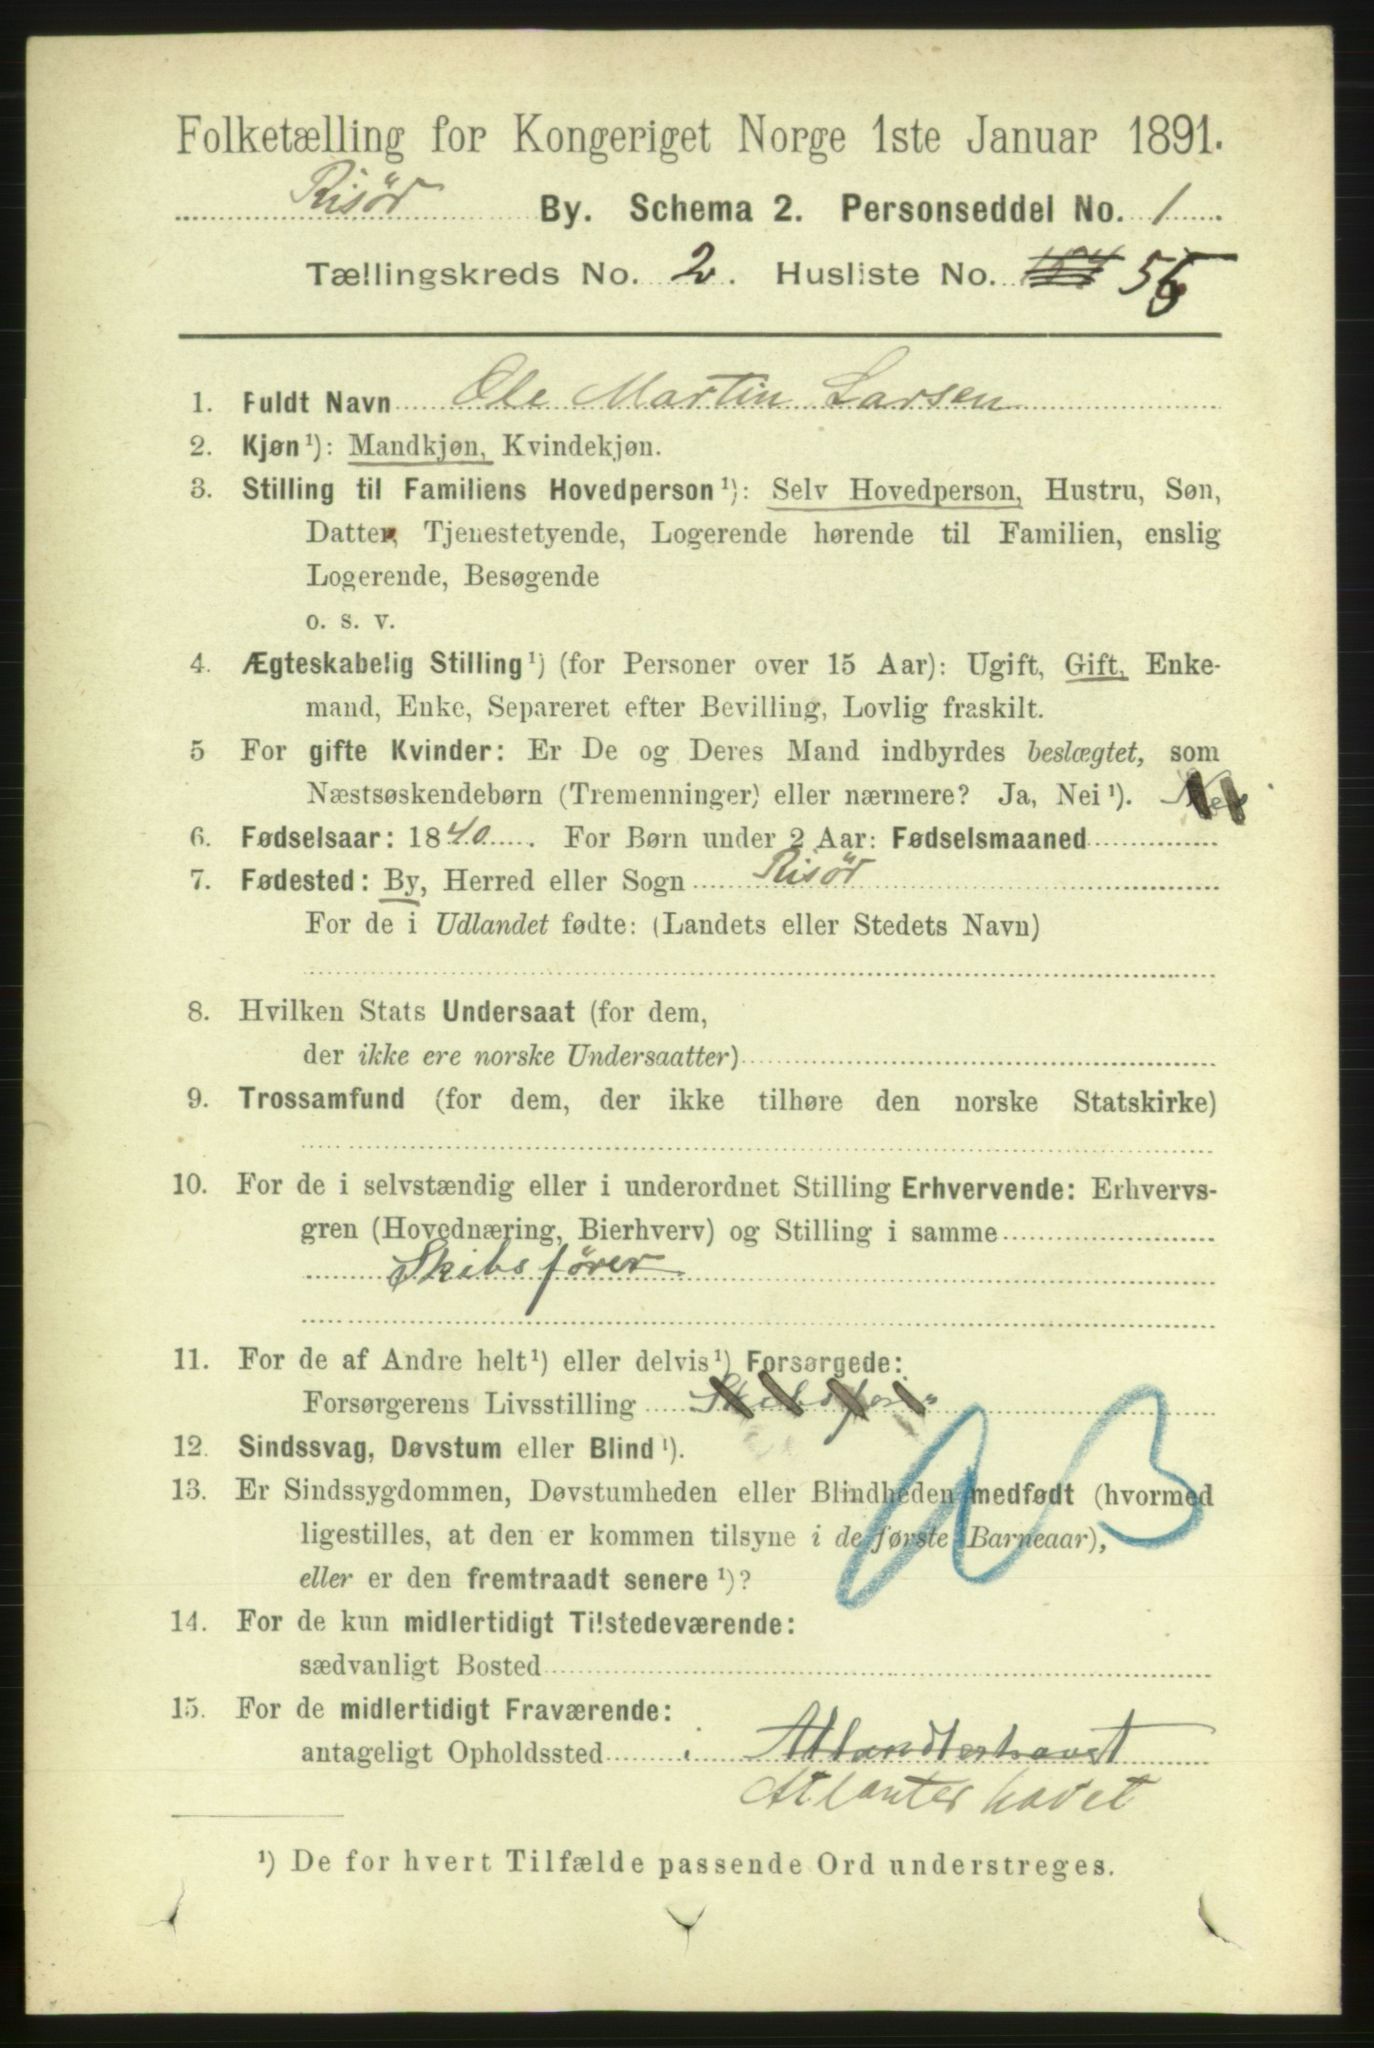 Folketælling for Kongeriget Norge 1ste Januar 1891.
Risør By. Schema 2. Personseddel No. 1
Tællingskreds No. 2. Husliste No. 56
1. Fuldt Navn Ole Martin Larsen
2. Kjøn¹): Mandkjøn, Kvindekjøn.
3. Stilling til Familiens Hovedperson¹): Selv Hovedperson, Hustru, Søn,
Datter, Tjenestetyende, Logerende hørende til Familien, enslig
Logerende, Besøgende
o. s. v.
4. Ægteskabelig Stilling¹) (for Personer over 15 Aar): Ugift, Gift, Enke-
mand, Enke, Separeret efter Bevilling, Lovlig fraskilt.
5 For gifte Kvinder: Er De og Deres Mand indbyrdes beslægtet, som
Næstsøskendebørn (Tremenninger) eller nærmere? Ja, Nei¹). Nei
6. Fødselsaar: 1840. For Børn under 2 Aar: Fødselsmaaned
7. Fødested: By, Herred eller Sogn Risør
For de i Udlandet fødte: (Landets eller Stedets Navn)
8. Hvilken Stats Undersaat (for dem,
der ikke ere norske Undersaatter)
9. Trossamfund (for dem, der ikke tilhøre den norske Statskirke)
10. For de i selvstændig eller i underordnet Stilling Erhvervende: Erhvervs-
gren (Hovednæring, Bierhverv) og Stilling i samme
Skibsfører
11. For de af Andre helt¹) eller delvis¹) Forsørgede:
Forsørgerens Livsstilling
12. Sindssvag, Døvstum eller Blind¹).
13. Er Sindssygdommen, Døvstumheden eller Blindheden medfødt (hvormed
ligestilles, at den er kommen tilsyne i de første Barneaar),
eller er den fremtraadt senere¹)?
14. For de kun midlertidigt Tilstedeværende:
sædvanligt Bosted
15. For de midlertidigt Fraværende:
antageligt Opholdssted i Atlandterhavet
Atlanterhavet
¹) De for hvert Tilfælde passende Ord understreges.